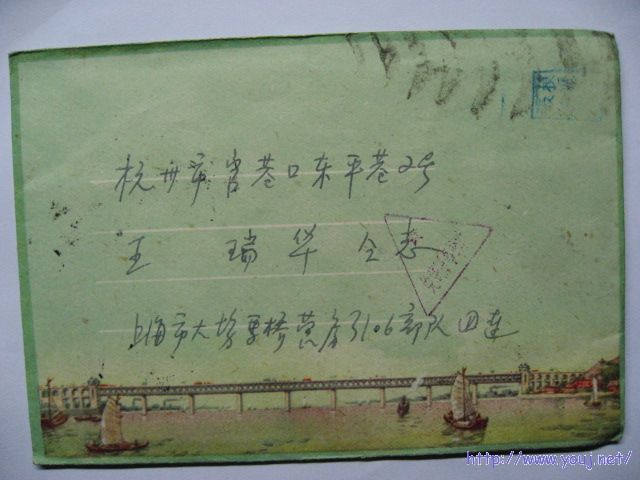 杭州市官巷口东平巷2号
王瑞华仝志
上海市大场军桥营房3106部队四连
http://www.youj.net/